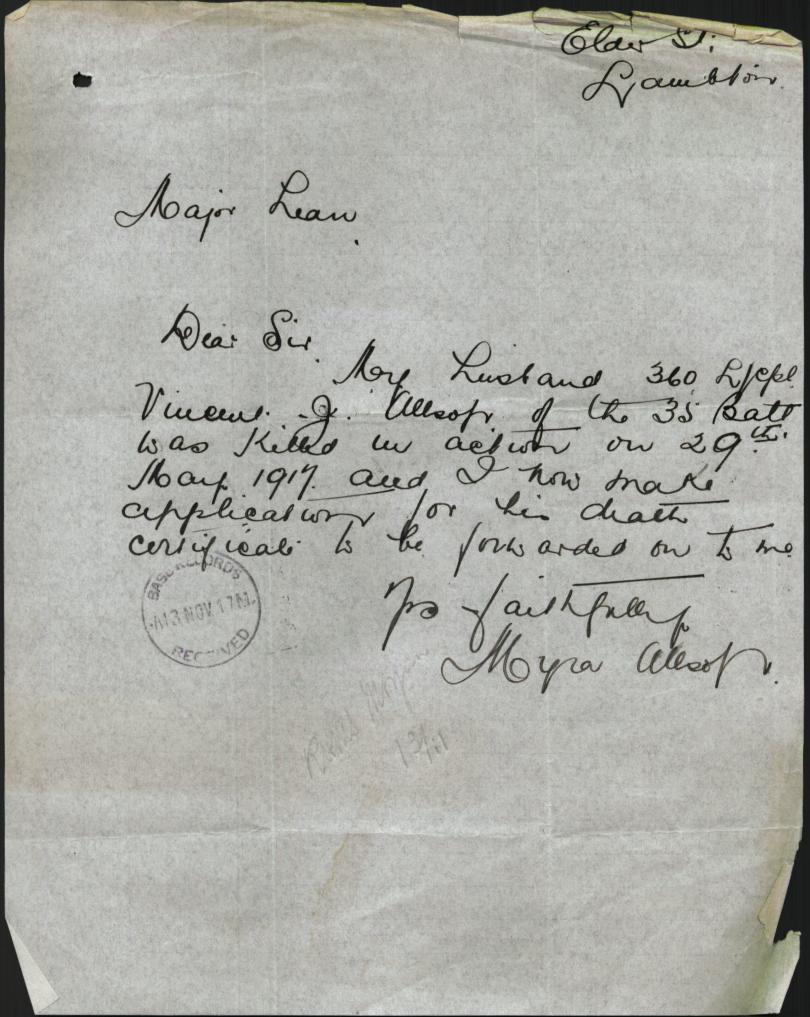 Elder St.
Lambton.
Major Lean.
Dear Sir.
My husband 360 L/cpl
Vincent. J. Allsopp of the 35 Batt
was Killed in action on 29th.
May 1917. and I now make
application for his death
certificate to be forwarded on to me
BASE RECORDS
13 NOV. 17
RECEIVED
Yrs faithfully
Myra Allsopp.
13/11